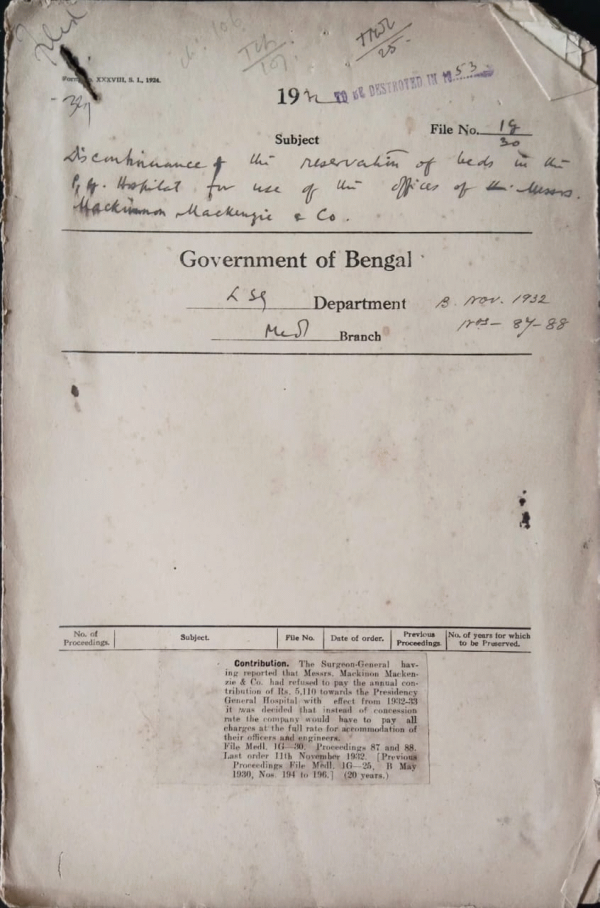 Filed
ch. 106
Form No. XXXVIII, S. I., 1924.
1932 TO BE DESTROYED IN 1953
File No. 1G/30
Subject
Discontinuance of the reservation of beds in the
P. G. Hospital for use of the offices of the Messrs.
Mackinnon Mackenzie & Co.
Government of Bengal
L S G Department
B. Nov. 1932
Medl Branch
Nos- 87-88
No. of Proceedings. Subject. File No. Date of order. Previous Proceedings. No. of years for which to be Preserved.
Contribution. The Surgeon-General hav-
ing reported that Messrs. Mackinon Macken-
zie & Co. had refused to pay the annual con-
tribution of Rs. 5,110 towards the Presidency
General Hospital with effect from 1932-33
it was decided that instead of concession
rate the company would have to pay all
charges at the full rate for accommodation of
their officers and engineers.
File Medl. 1G—30. Proceedings 87 and 88.
Last order 11th November 1932. [Previous
Proceedings File Medl. 1G—25, B May
1930, Nos. 194 to 196.] (20 years.)